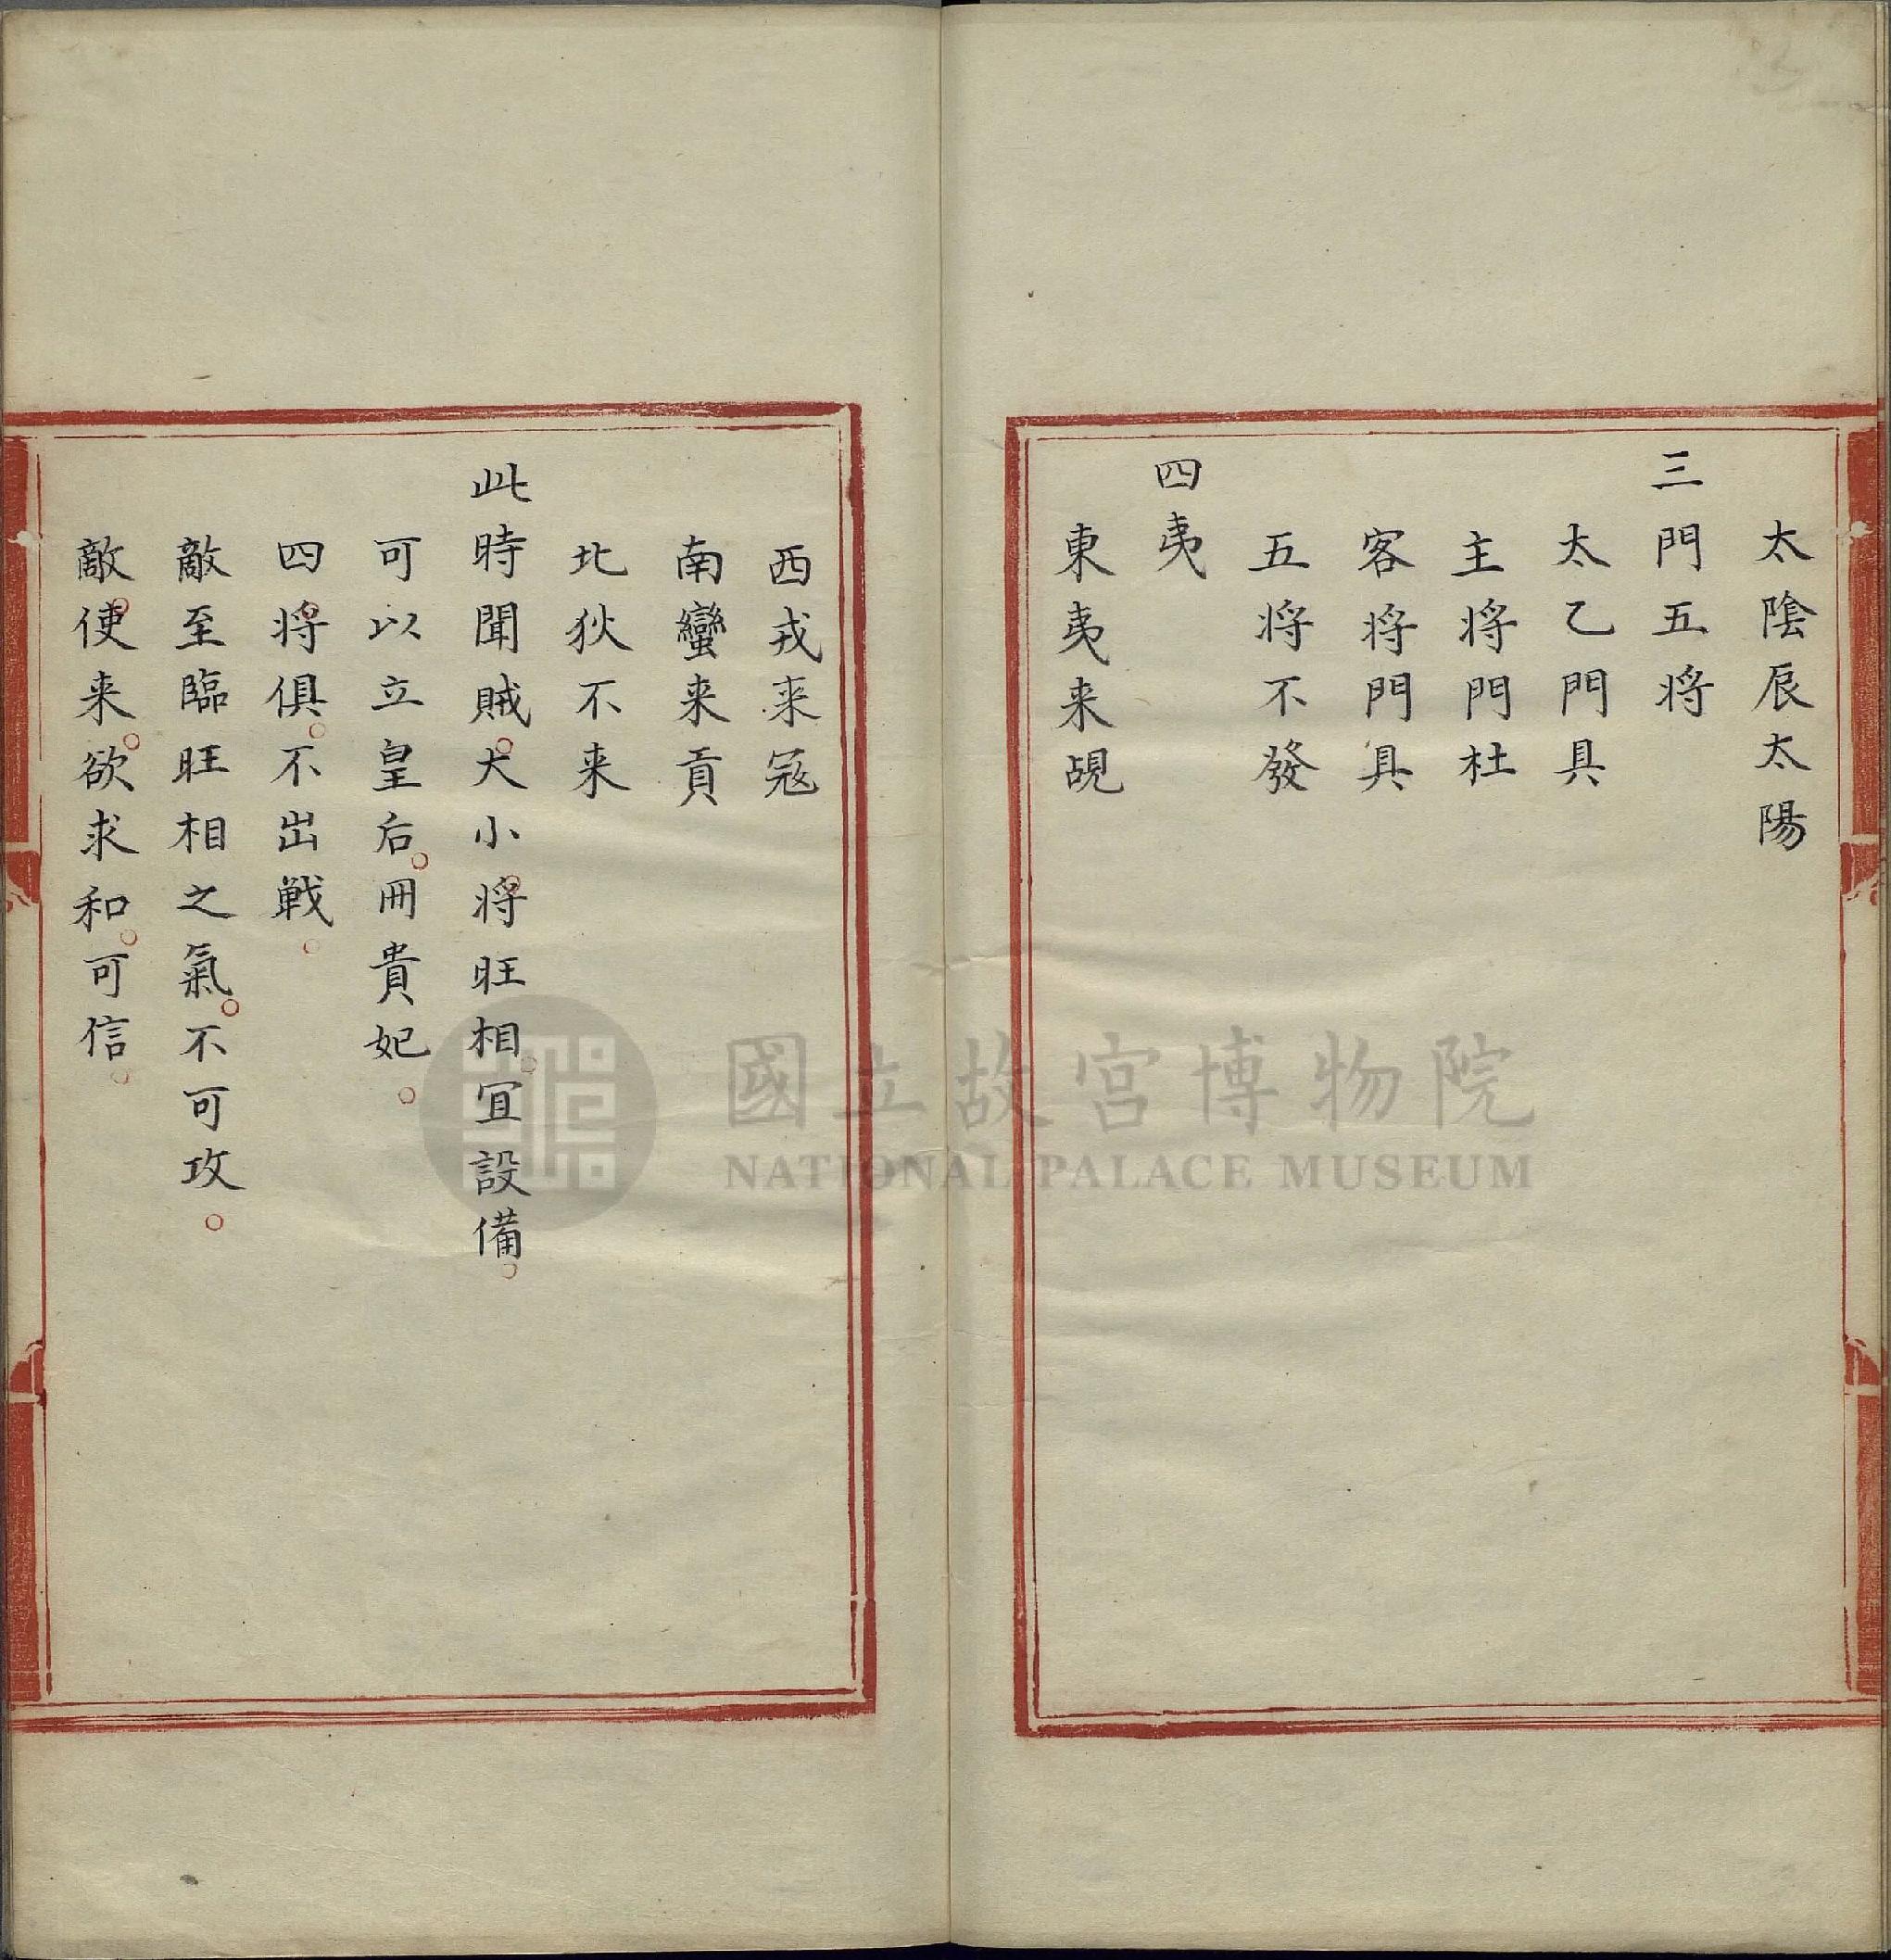 太陰辰太陽
三門五将
太乙門具
主将門杜
客将門具
五将不發
四夷
東夷来覘
西戎来冦
南蠻来貢
北狄不来
此時聞賊犬小将旺相冝設備
可以立皇后冊貴妃
四将俱不出戰
敵至臨旺相之氣不可攻
敵使来欲求和可信
國立故宮博物院
NATIONAL PALACE MUSEUM